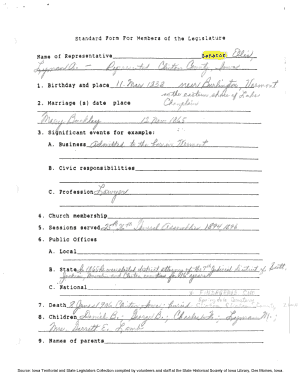 Standard Form For Members of the Legislature
Name of Representative Senator Ellis,
Lyman A. - Represented Clinton County, Iowa
1. Birthday and place 11 Mar 1833 near Burlington, Vermont
on the eastern shore of Lake
2. Marriage (s) date place Champlain
Mary Buckley 13 Nov 1865
3. Significant events for example:
A. Business Admitted to the bar in Vermont
B. Civic responsibilities
C. Profession Lawyer
4. Church membership
5. Sessions served 25th, 26th General Assemblies 1894, 1896
6. Public Offices
A. Local
B. State district attorney of the 7th Judicial District of Scott,
Jackson, Clinton
C. National
7. Death 1906 Clinton, Iowa; buried
8. Children Daniel B.; George B.; Charles; Lyman M.;
Mrs. Garrett E. Lamb
9. Names of parents
Source: Iowa Territorial and State Legislators Collection compiled by volunteers and staff at the State Historical Society of Iowa Library, Des Moines, Iowa.